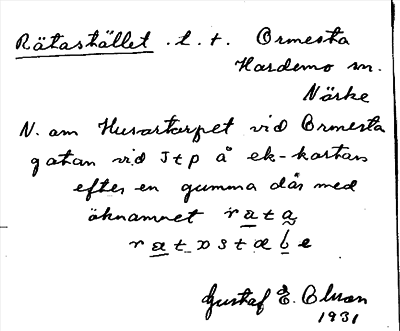 Rätastället . t. t. Ormesta
Hardemo sn.
Närke
N. om Husartorpet vid Ormesta
gatan vid Jtp å ek-kartan
efter en gumma där med
öknamnet rata
ratostæbe
Gustaf E. Olson
1931